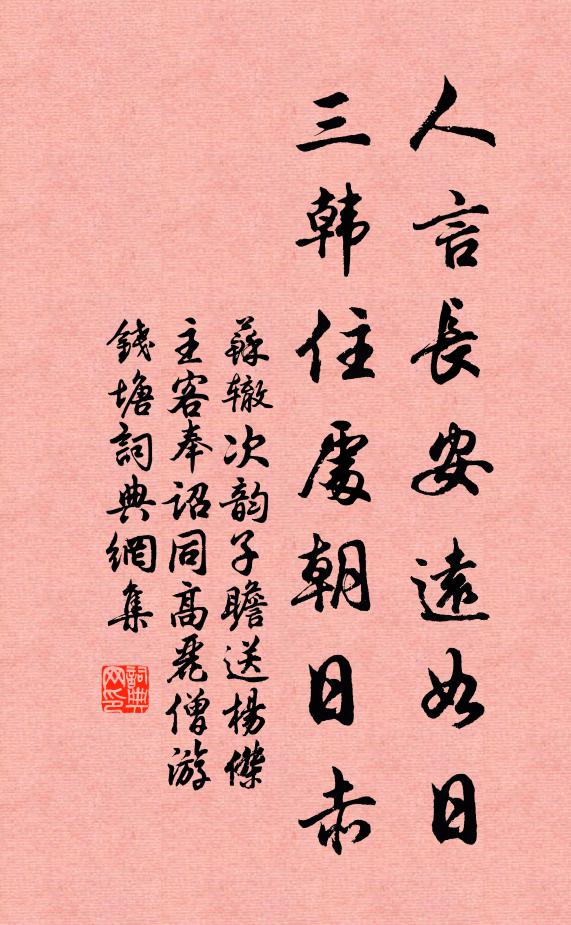 人言長安遠如日
三韩住處朝日赤
蘇辙次韵子瞻送楊傑
主客奉诏同高麗僧游
錢塘詞典網集
詞典网印